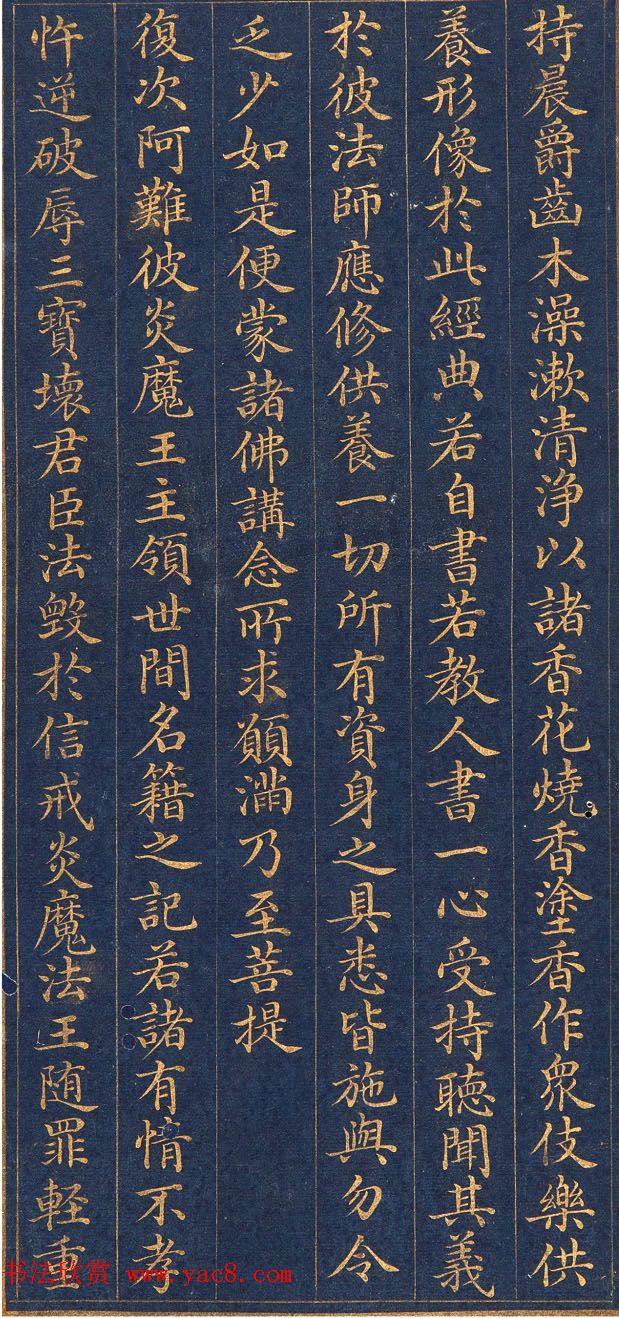 持晨爵齒木澡漱清浄以諸香花燒香塗香作衆伎樂供
養形像於此經典若自書若教人書一心受持聴聞其義
於彼法師應修供養一切所有資身之具悉皆施與勿令
乏少如是便蒙諸佛講念所求願滿乃至菩提
復次阿難彼炎魔王主領世間名籍之記若諸有情不孝
忤逆破辱三寶壞君臣法毀於信戒炎魔法王随罪軽重
书法欣赏 www.yac8.com